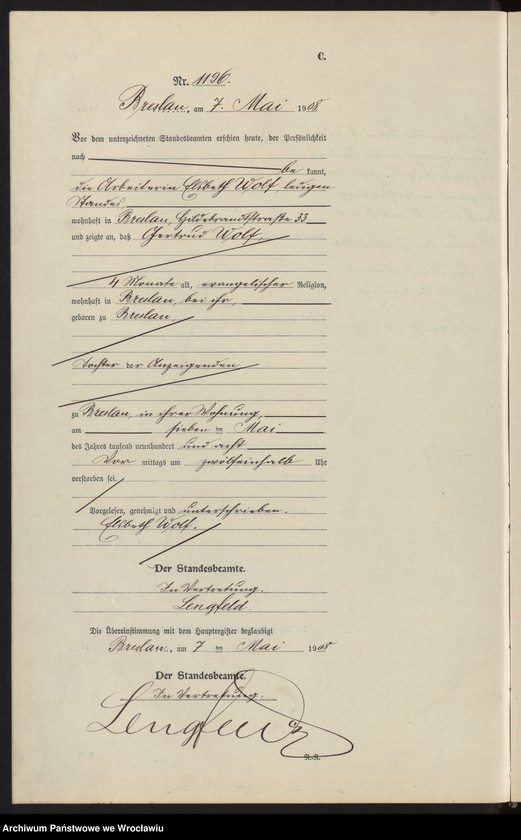 C.
Nr. 1196.
Breslau, am 7. Mai 1908.
Vor dem unterzeichneten Standesbeamten erschien heute, der Persönlichkeit
nach
be kannt,
die Arbeiterin Elsbeth Wolf ledigen
Standes
wohnhaft in Breslau, Hildebrandtstraße 33
und zeigte an, daß Gertrud Wolf,
4 Monate alt, evangelischer Religion,
wohnhaft in Breslau, bei ihr,
geboren zu Breslau
Tochter der Anzeigenden
zu Breslau, in ihrer Wohnung,
am sieben ten Mai
des Jahres tausend neunhundert und acht
Vor mittags um zwölfeinhalb Uhr
verstorben sei.
Vorgelesen, genehmigt und unterschrieben.
Elsbeth Wolf.
Der Standesbeamte.
In Vertretung.
Lengfeld.
Die Übereinstimmung mit dem Hauptregister beglaubigt
Breslau, am 7 ten Mai 1908
Der Standesbeamte.
In Vertretung.
Lengfeld
Archiwum Państwowe we Wrocławiu